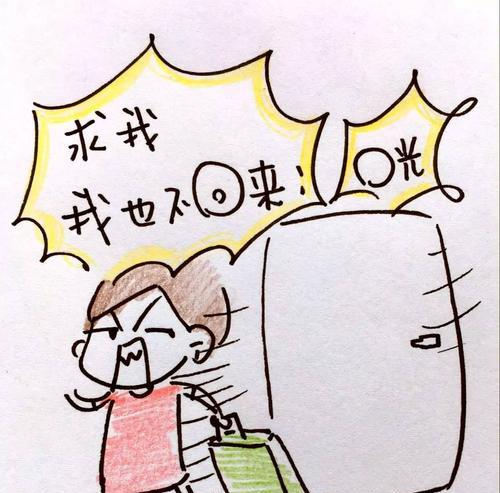 求我
我也不回来!
咣